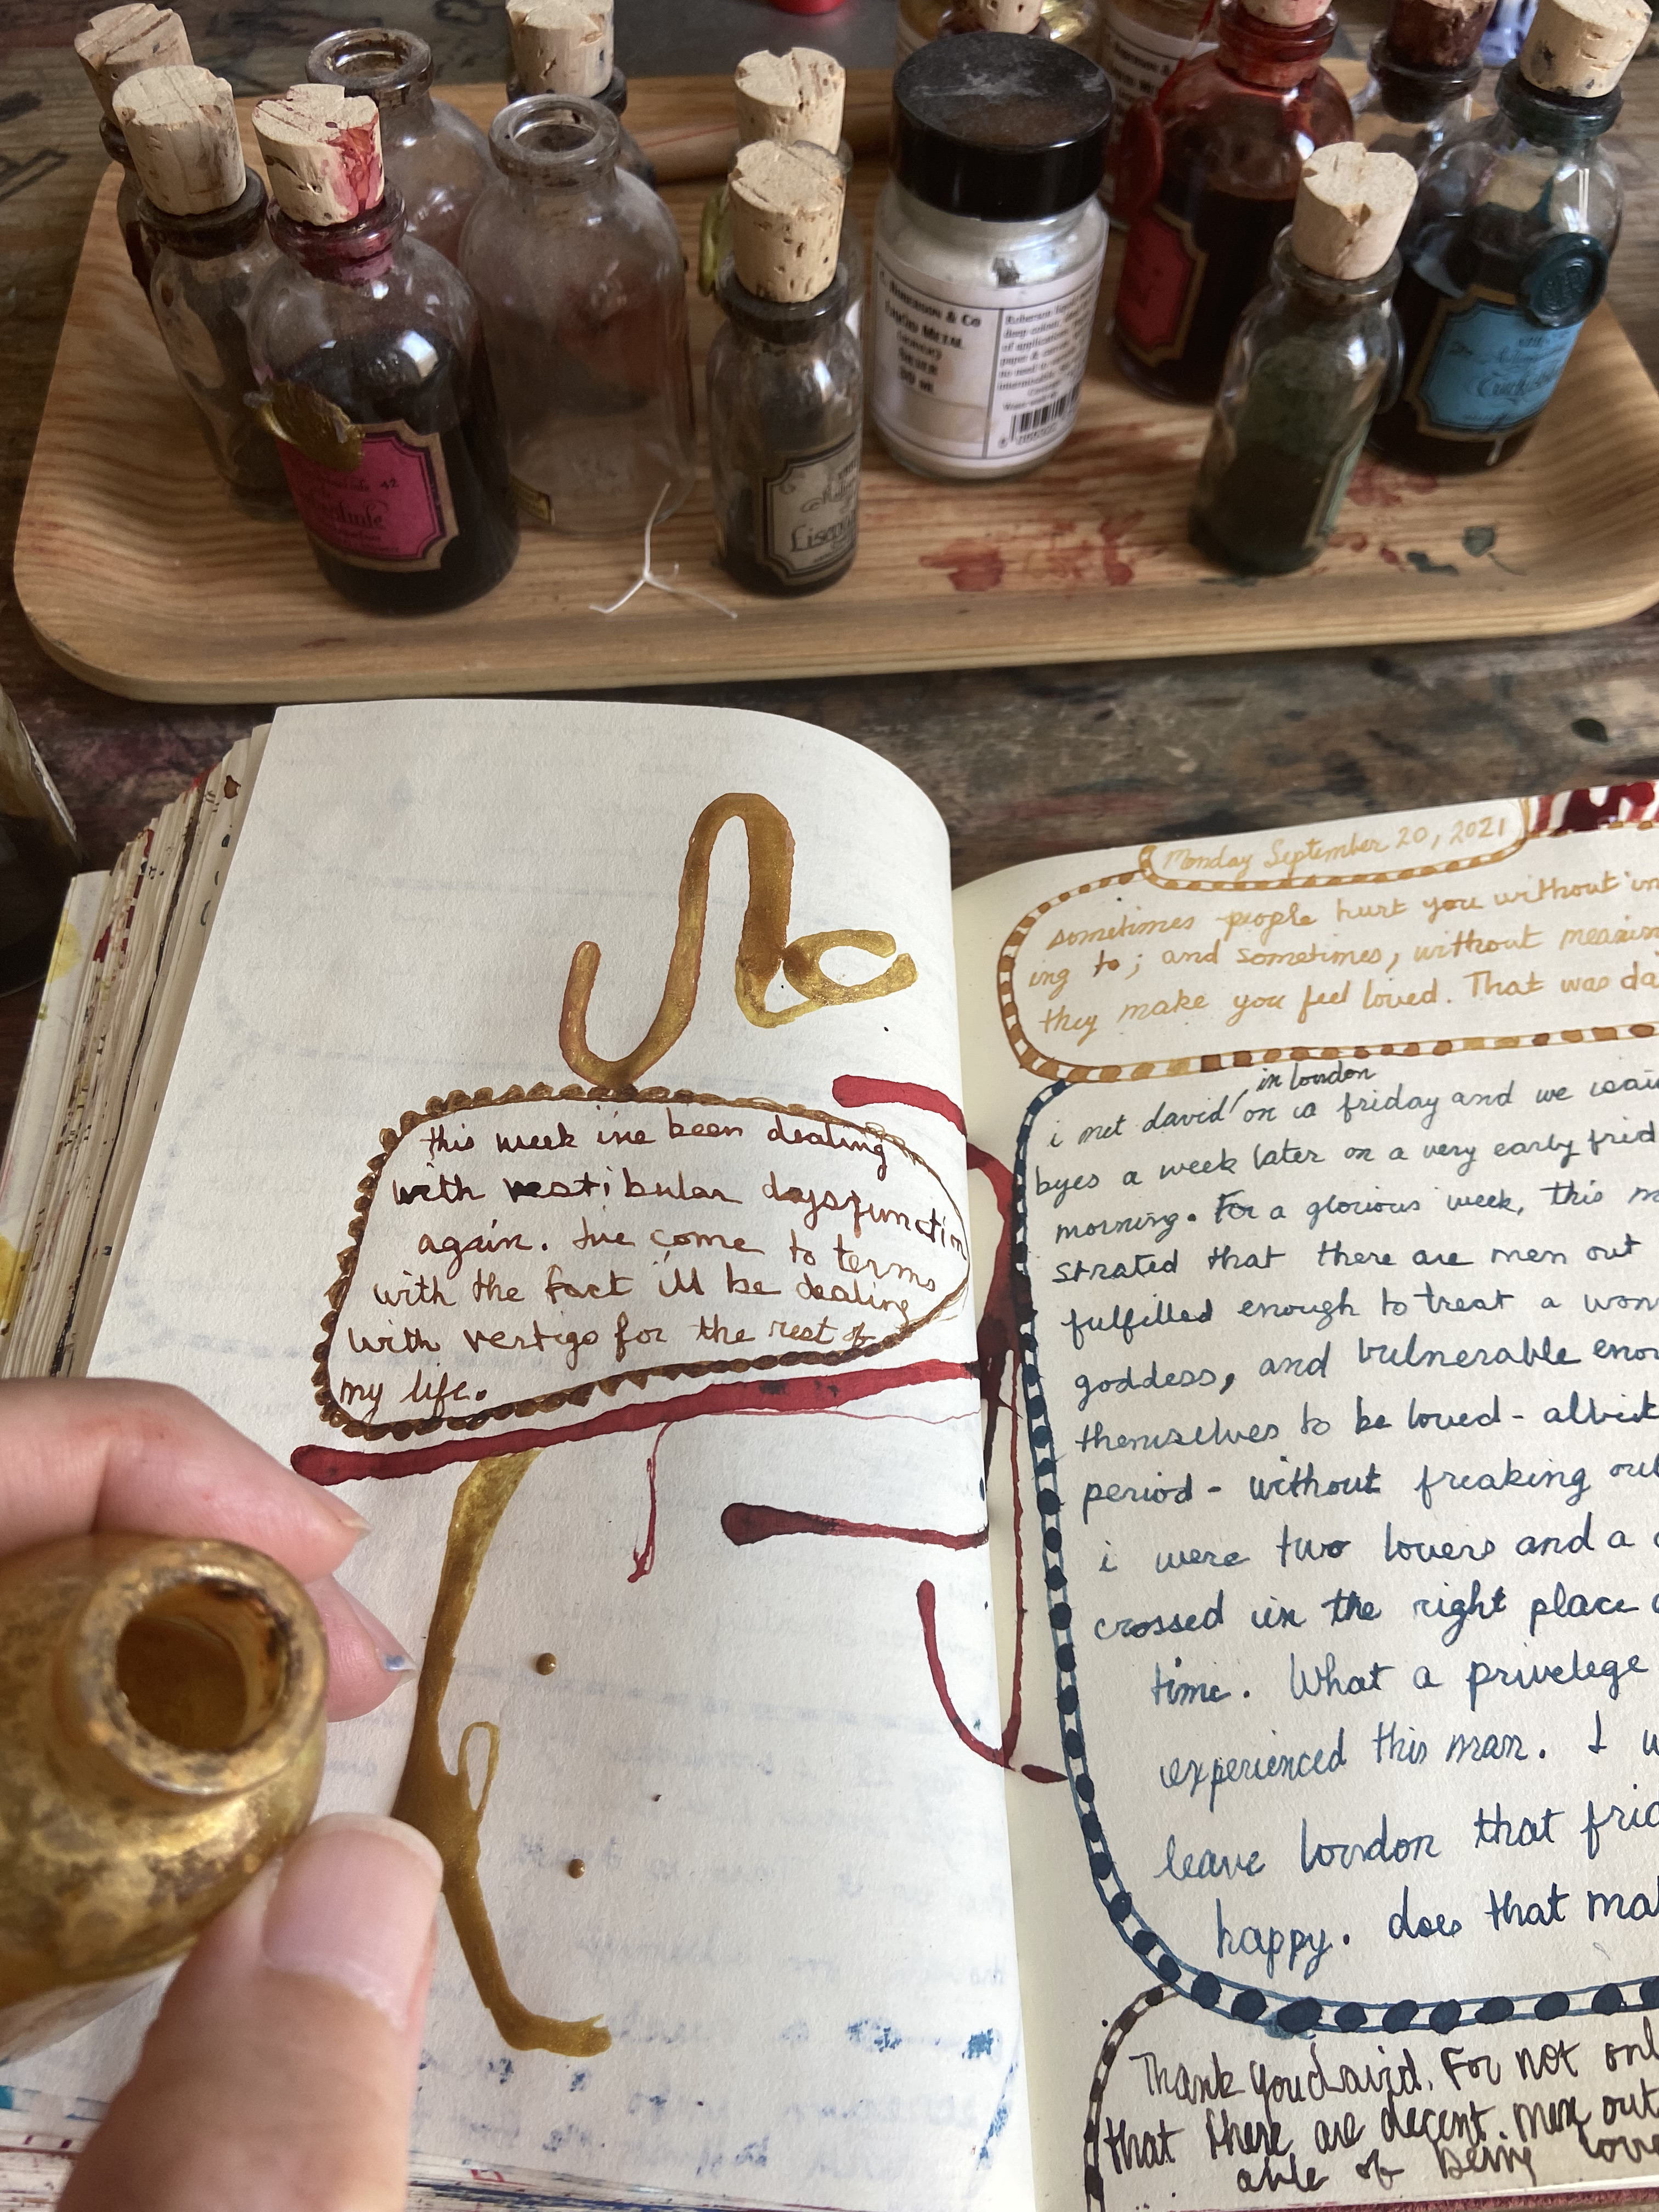 42
& Co
SILVER
this week ive been dealing
with vestibular daysfunction
again. Ive come to terms
with the fact i'll be dealing
with vertigo for the rest of
my life.
Monday September 20, 2021
sometimes people hurt you without in
ing to; and sometimes, without meanin
they make you feel loved. That was da
in london
i met david on a friday and we
byes a week later on a very early frid
morning. For a glorious week, this m
strated that there are men out
fulfilled enough to treat a wom
goddess, and vulnerable enou
themselves to be loved - albeit
period - without freaking out
i were two lovers and a
crossed in the right place
time. What a privelege
experienced this man. I w
leave london that frid
happy. does that ma
Thank you david. For not onl
that there are decent men out
able of being love